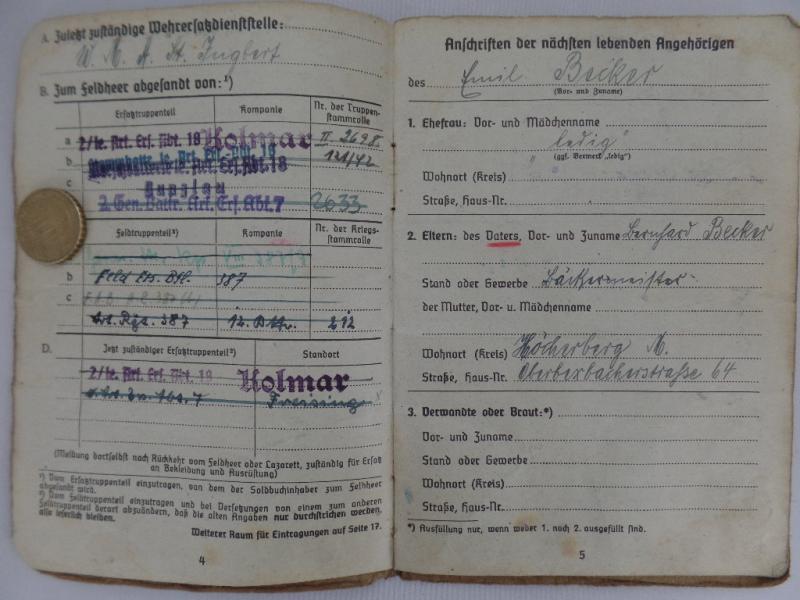 A. Zuletzt zuständige Wehrersatzdienststelle:
W. M. A. St. Ingbert
B. Zum Feldheer abgesandt von:¹)
Ersatztruppenteil Kompanie Nr. der Truppenstammrolle
a 2/le. Art. Ers. Abt. 18 Kolmar II 2698
b 121/42
c
2. Gen. Battr. Art. Ers. Abt. 7 2633
Feldtruppenteil²) Kompanie Nr. der Kriegsstammrolle
b 387
c
Art. Rgt. 387 12. Bttr. 212
D. Jetzt zuständiger Ersatztruppenteil²) Standort
2/le. Art. Ers. Abt. 18 Kolmar
Freising
(Meldung dortselbst nach Rückkehr vom Feldheer oder Lazarett, zuständig für Ersatz
an Bekleidung und Ausrüstung)
¹) Vom Ersatztruppenteil einzutragen, von dem der Soldbuchinhaber zum Feldheer
abgesandt wird.
²) Vom Feldtruppenteil einzutragen und bei Versetzungen von einem zum anderen
Feldtruppenteil derart abzuändern, daß die alten Angaben nur durchstrichen werden,
also leserlich bleiben.
Weiterer Raum für Eintragungen auf Seite 17.
4
Anschriften der nächsten lebenden Angehörigen
des Emil Becker
(Vor- und Zuname)
1. Ehefrau: Vor- und Mädchenname
"ledig"
(ggf. Vermerk „ledig“)
Wohnort (Kreis)
Straße, Haus-Nr.
2. Eltern: des Vaters, Vor- und Zuname Bernhard Becker
Stand oder Gewerbe Bäckermeister
der Mutter, Vor- u. Mädchenname
Wohnort (Kreis) Höcherberg
Straße, Haus-Nr. Oberbexbacherstraße 64
3. Verwandte oder Braut:*)
Vor- und Zuname
Stand oder Gewerbe
Wohnort (Kreis)
Straße, Haus-Nr.
*) Ausfüllung nur, wenn weder 1. noch 2. ausgefüllt sind.
5